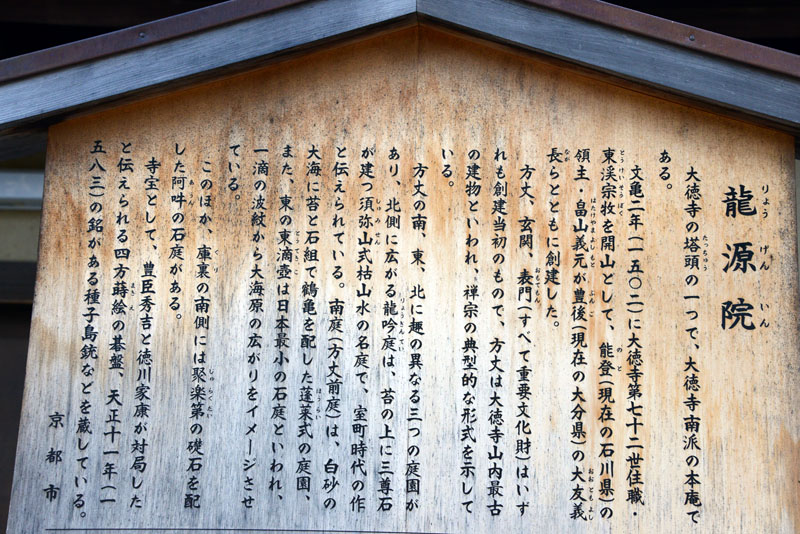 龍源院
りょうげんいん
大徳寺の塔頭の一つで、大徳寺南派の本庵で
たっちゅう
ある。
文亀二年(一五〇二)に大徳寺第七十二世住職・
東渓宗牧を開山として、能登(現在の石川県)の
とうけいそうぼく
のと
領主・畠山義元が豊後(現在の大分県)の大友義
はたけやまよしもと
ぶんご
おおともよし
長らとともに創建した。
なが
方丈、玄関、表門(すべて重要文化財)はいず
おもてもん
れも創建当初のもので、方丈は大徳寺山内最古
の建物といわれ、禅宗の典型的な形式を示して
いる。
方丈の南、東、北に趣の異なる三つの庭園が
あり、北側に広がる龍吟庭は、苔の上に三尊石
りょうぎんてい
が建つ須弥山式枯山水の名庭で、室町時代の作
しゅみせん
と伝えられている。南庭(方丈前庭)は、白砂の
大海に苔と石組で鶴亀を配した蓬莱式の庭園、
ほうらい
また、東の東滴壺は日本最小の石庭といわれ、
とうてきこ
一滴の波紋から大海原の広がりをイメージさせ
ている。
このほか、庫裏の南側には聚楽第の礎石を配
くり
じゅらくだい
した阿吽の石庭がある。
あうん
寺宝として、豊臣秀吉と徳川家康が対局した
と伝えられる四方蒔絵の碁盤、天正十一年(一
まきえ
五八三)の銘がある種子島銃などを蔵している。
京都市